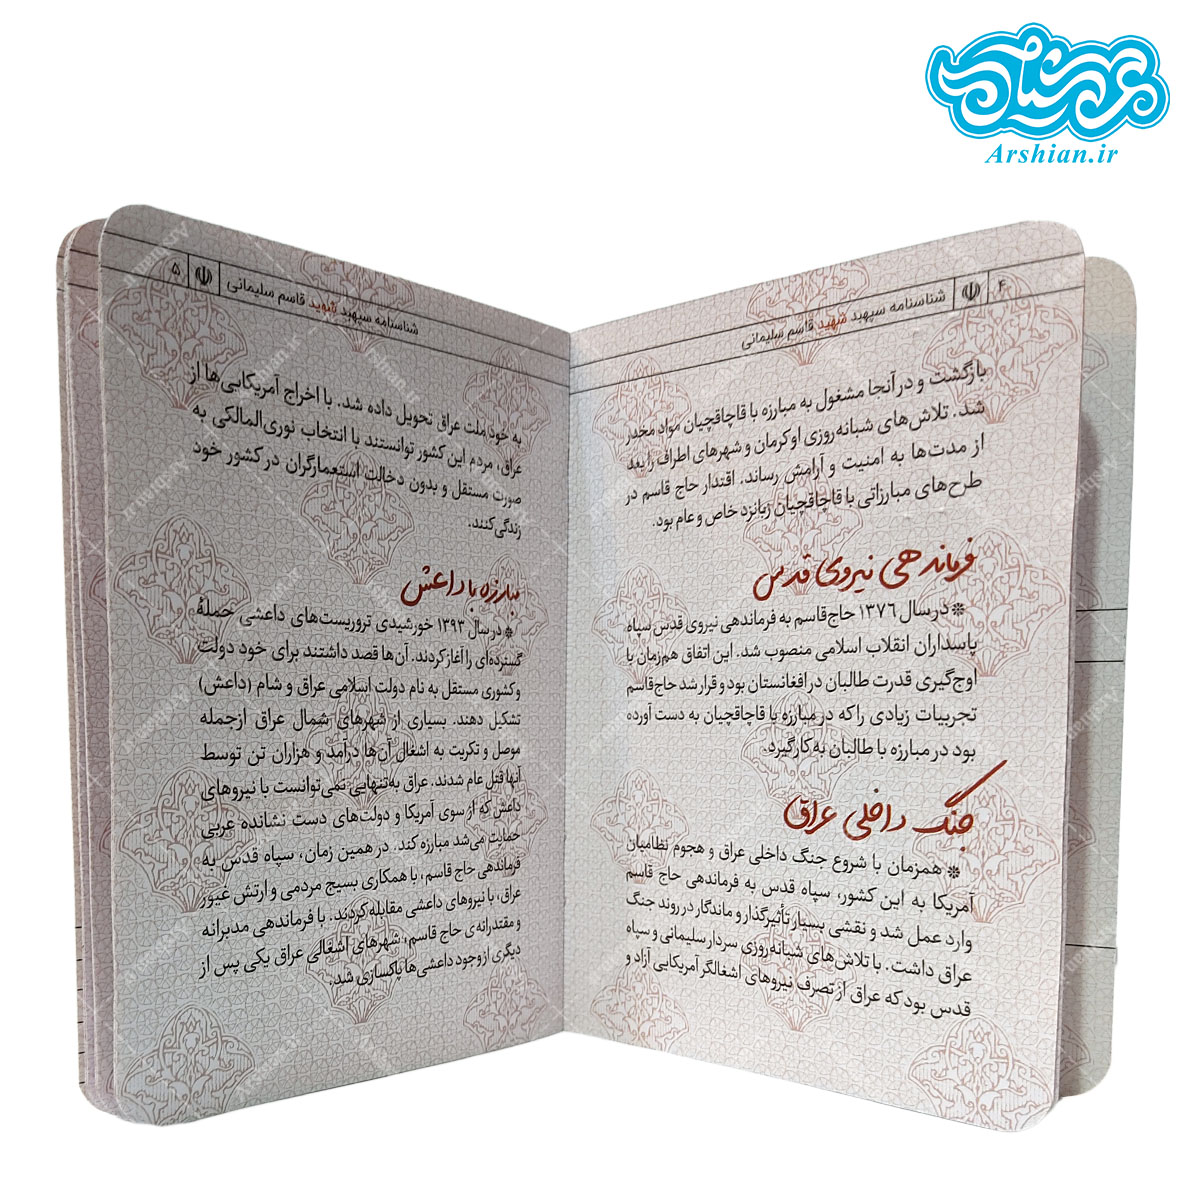 عرشیان
Arshian.ir
۴
شناسنامه سپهبد شهید قاسم سلیمانی
بازگشت و در آنجا مشغول به مبارزه با قاچاقچیان مواد مخدر
شد. تلاش‌های شبانه‌روزی او کرمان و شهرهای اطراف را بعد
از مدت‌ها به امنیت و آرامش رساند. اقتدار حاج قاسم در
طرح‌های مبارزاتی با قاچاقچیان زبانزد خاص و عام بود.
فرماندهی نیروی قدس
* در سال ۱۳۷۶ حاج‌قاسم به فرماندهی نیروی قدس سپاه
پاسداران انقلاب اسلامی منصوب شد. این اتفاق هم‌زمان با
اوج‌گیری قدرت طالبان در افغانستان بود و قرار شد حاج‌قاسم
تجربیات زیادی را که در مبارزه با قاچاقچیان به دست آورده
بود در مبارزه با طالبان به کار گیرد.
جنگ داخلی عراق
* همزمان با شروع جنگ داخلی عراق و هجوم نظامیان
آمریکا به این کشور، سپاه قدس به فرماندهی حاج قاسم
وارد عمل شد و نقشی بسیار تأثیرگذار و ماندگار در روند جنگ
عراق داشت. با تلاش‌های شبانه‌روزی سردار سلیمانی و سپاه
قدس بود که عراق از تصرف نیروهای اشغالگر آمریکایی آزاد و
۵
شناسنامه سپهبد شهید قاسم سلیمانی
به خود ملت عراق تحویل داده شد. با اخراج آمریکایی‌ها از
عراق، مردم این کشور توانستند با انتخاب نوری‌المالکی به
صورت مستقل و بدون دخالت استعمارگران در کشور خود
زندگی کنند.
مبارزه با داعش
* در سال ۱۳۹۳ خورشیدی تروریست‌های داعشی حملهٔ
گسترده‌ای را آغاز کردند. آن‌ها قصد داشتند برای خود دولت
و کشوری مستقل به نام دولت اسلامی عراق و شام (داعش)
تشکیل دهند. بسیاری از شهرهای شمال عراق ازجمله
موصل و تکریت به اشغال آن‌ها درآمد و هزاران تن توسط
آنها قتل عام شدند. عراق به‌تنهایی نمی‌توانست با نیروهای
داعش که از سوی آمریکا و دولت‌های دست نشانده عربی
حمایت می‌شد مبارزه کند. در همین زمان، سپاه قدس به
فرماندهی حاج قاسم، با همکاری بسیج مردمی و ارتش غیور
عراق، با نیروهای داعشی مقابله کردند. با فرماندهی مدبرانه
و مقتدرانه‌ی حاج قاسم، شهرهای اشغالی عراق یکی پس از
دیگری از وجود داعشی‌ها پاکسازی شد.